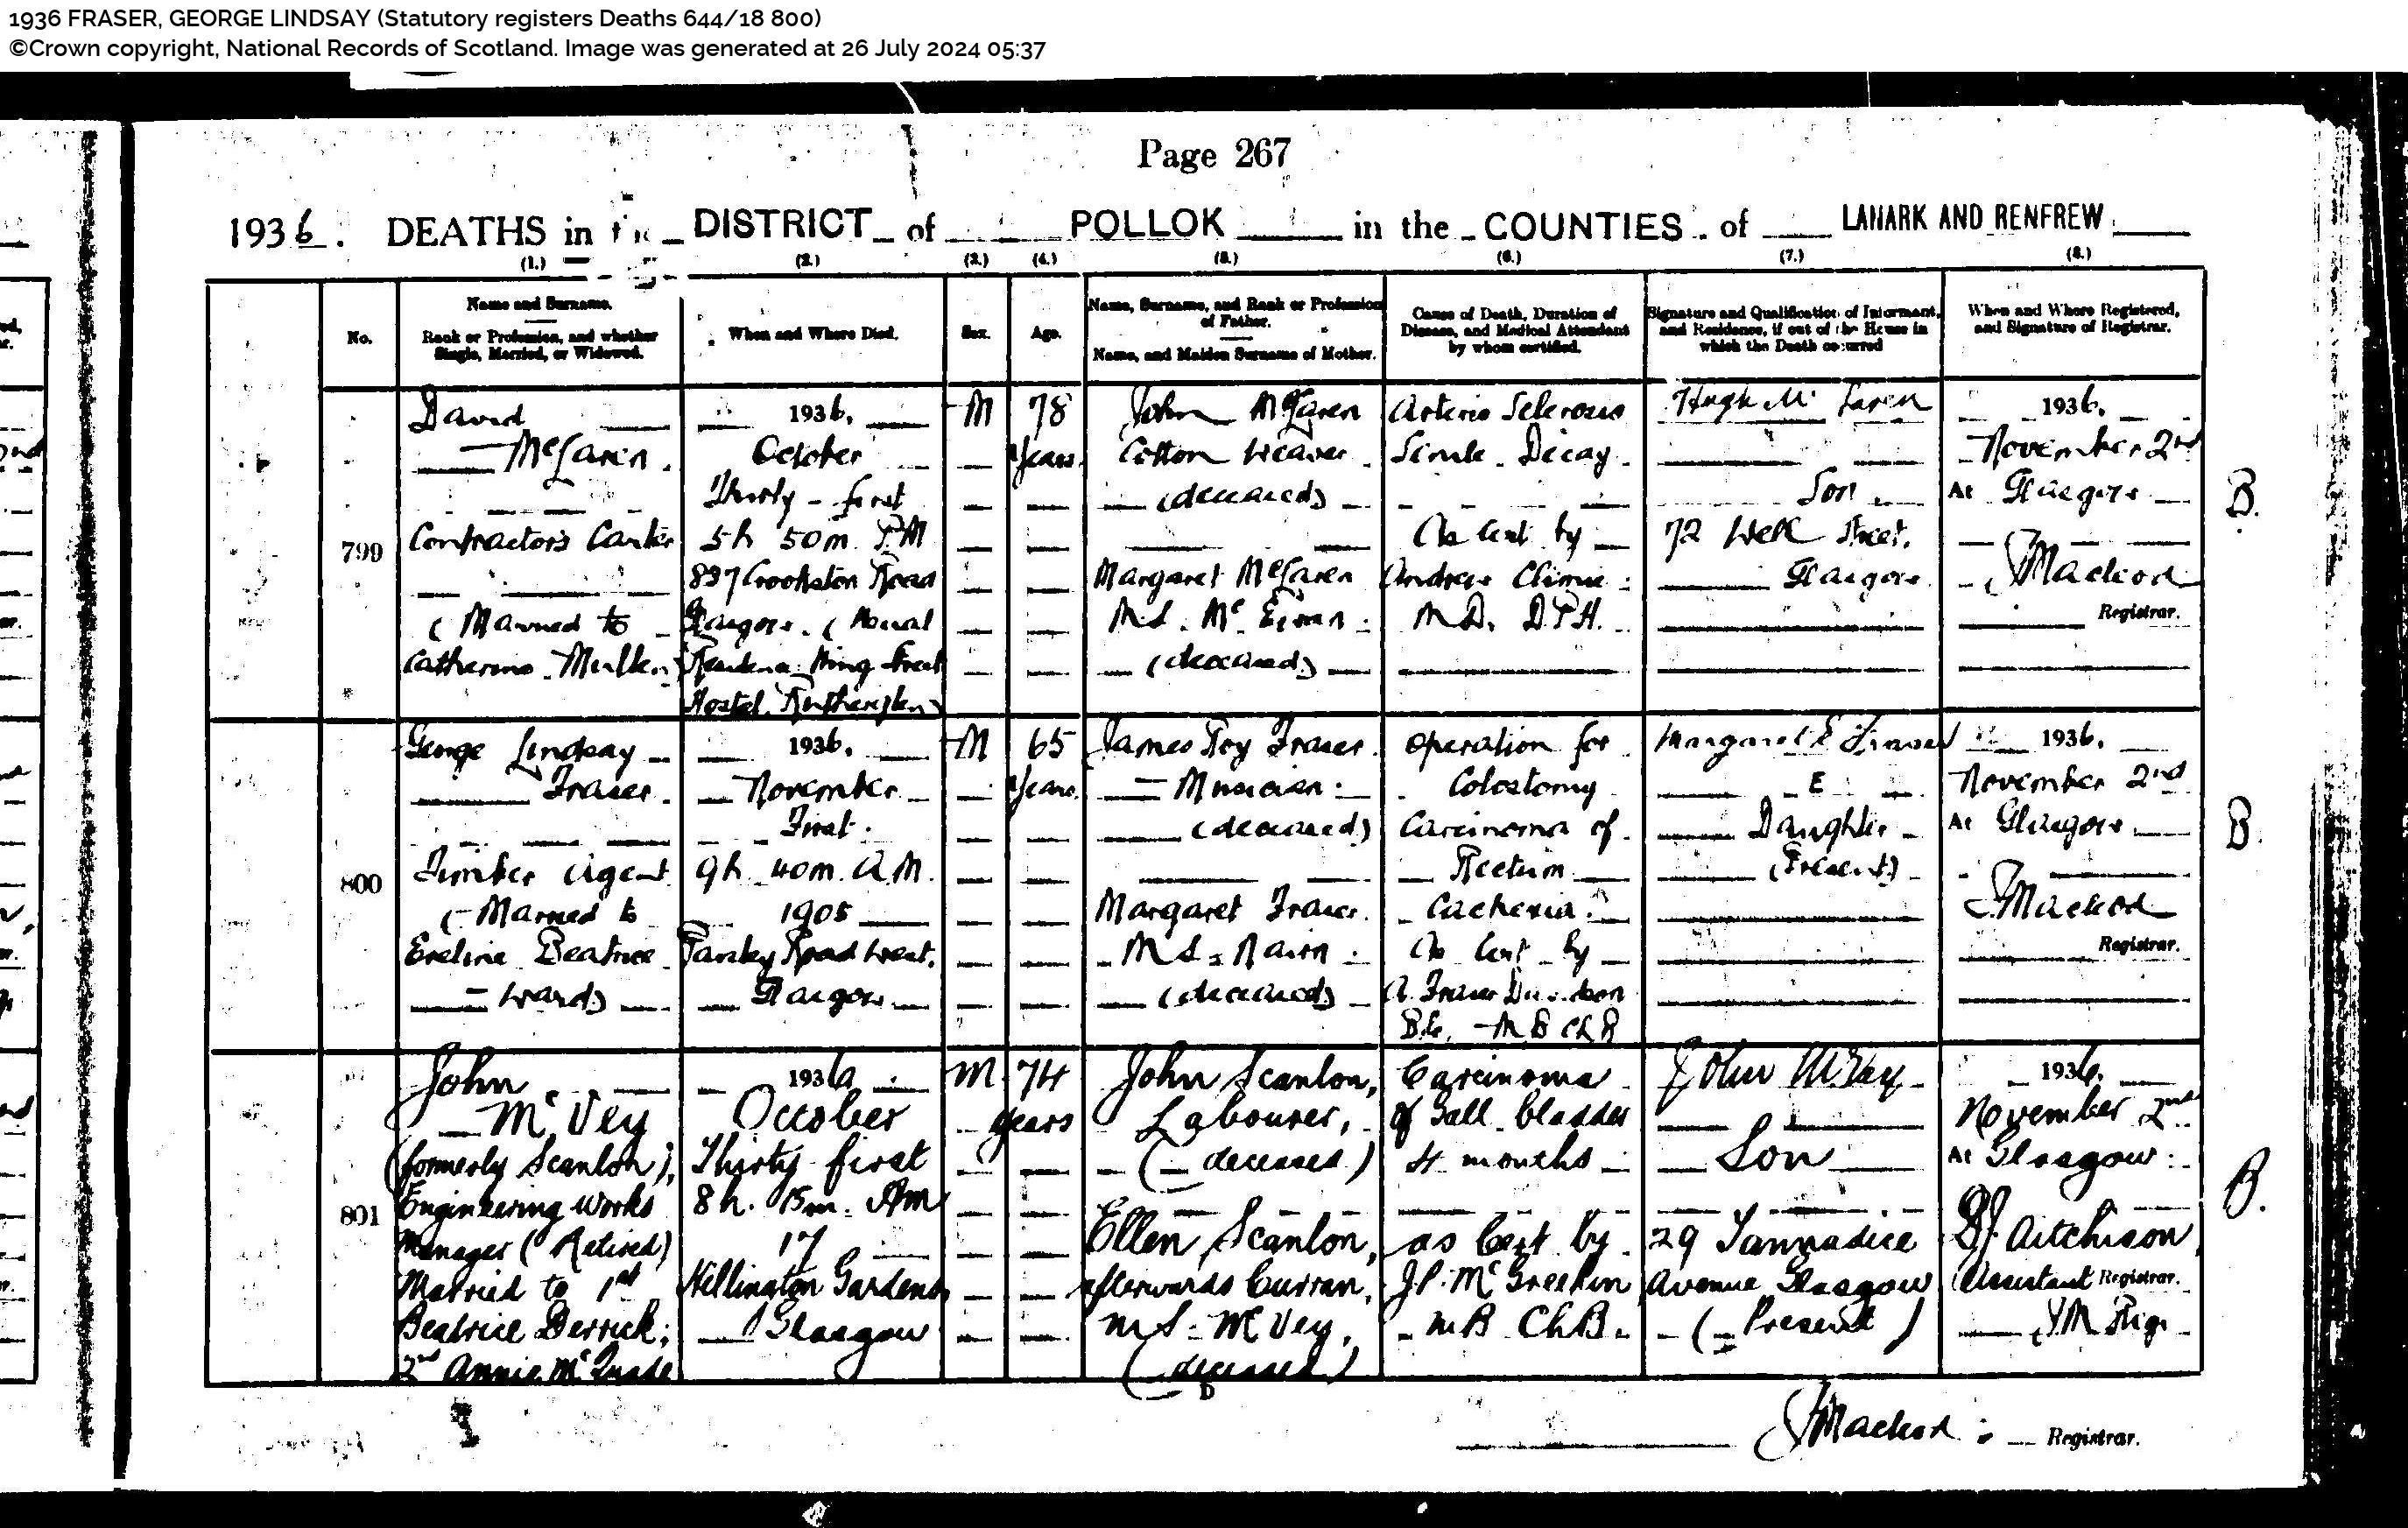 1936 FRASER, GEORGE LINDSAY (Statutory registers Deaths 644/18 800)
©Crown copyright, National Records of Scotland. Image was generated at 26 July 2024 05:37
Page 267
1936. DEATHS in DISTRICT of POLLOK in the COUNTIES of LANARK AND RENFREW
(1.) (2.) (3.) (4.) (5.) (6.) (7.) (8.)
No.
Name and Surname.
Rank or Profession, and whether
Single, Married, or Widowed.
When and Where Died.
Sex.
Age.
Name, Surname, and Rank or Profession
of Father.
Name, and Maiden Surname of Mother.
Cause of Death, Duration of
Disease, and Medical Attendant
by whom certified.
Signature and Qualification of Informant,
and Residence, if out of the House in
which the Death occurred
When and Where Registered,
and Signature of Registrar.
799
David
McLaren.
Contractor's Carter
(Married to
Catherine Mullen)
1936.
October
Thirty-first
5h 50m. P.M
897 Crookston Road
Glasgow. (Usual
Residence King Street
Hostel, Rutherglen)
M
78
Years
John McLaren
Cotton Weaver
(deceased)
Margaret McLaren
M.S. Mc
(deceased)
Arterio Sclerosis
Senile Decay.
As Cert by
Andrew Climie
M.D. D.P.H.
Hugh Mc Laren
Son
72 Well Street,
Glasgow
1936.
November 2nd
At Glasgow
Macleod
Registrar.
B.
800
George Lindsay
Fraser.
Timber Agent
(Married to
Eveline Beatrice
Ward)
1936.
November
First.
9h 40m. A.M.
1905
Paisley Road West.
Glasgow
M
65
Years
James Fraser.
Musician.
(deceased)
Margaret Fraser
M.S. Nairn
(deceased)
Operation for
Colostomy
Carcinoma of
Rectum
Cachexia.
As Cert by
A. Fraser
B.Sc. M B Ch B
Margaret E Fraser
E
Daughter
(Present)
1936.
November 2nd
At Glasgow
Macleod
Registrar.
B.
801
John
Mc Vey
(formerly Scanlon),
Engineering Works
Manager (Retired)
Married to 1st
Beatrice Derrick;
2nd Annie Mc Quade
1936
October
Thirty first
8h. 15m. AM
17
Hillington Gardens
Glasgow
M.
74
years
John Scanlon,
Labourer,
(deceased)
Ellen Scanlon,
afterwards Curran,
M.S. McVey,
(deceased)
Carcinoma
of Gall bladder
4 months
as Cert by
J.P. Mc
M.B Ch.B.
John McVey
Son
29 Tannadice
Avenue Glasgow
(Present)
1936.
November 2nd
At Glasgow
Aitchison
Assistant Registrar.
B.
Macleod
Registrar.